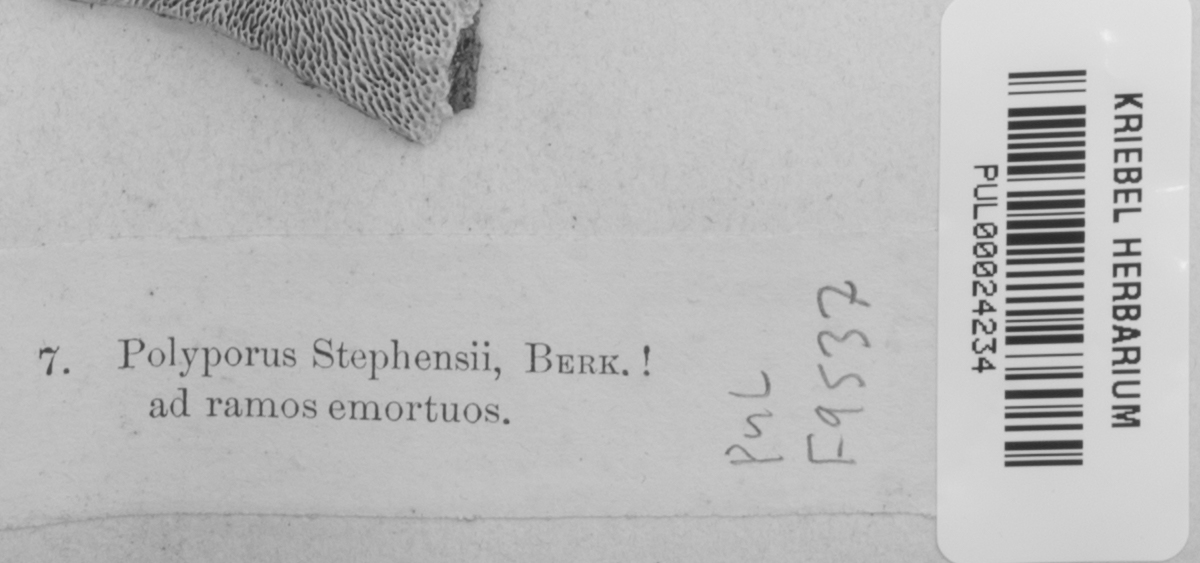 7. Polyporus Stephensii, BERK. !
ad ramos emortuos.
PUL
F9537
PUL00024234
KRIEBEL HERBARIUM